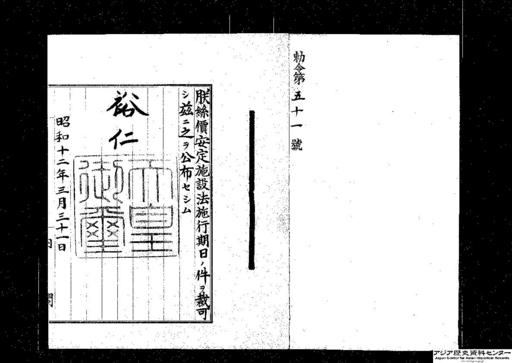 勅令第五十一號
朕絲價安定施設法施行期日ノ件ヲ裁可
シ玆ニ之ヲ公布セシム
裕仁
天皇御璽
昭和十二年三月三十一日
アジア歴史資料センター
Japan Center for Asian Historical Records